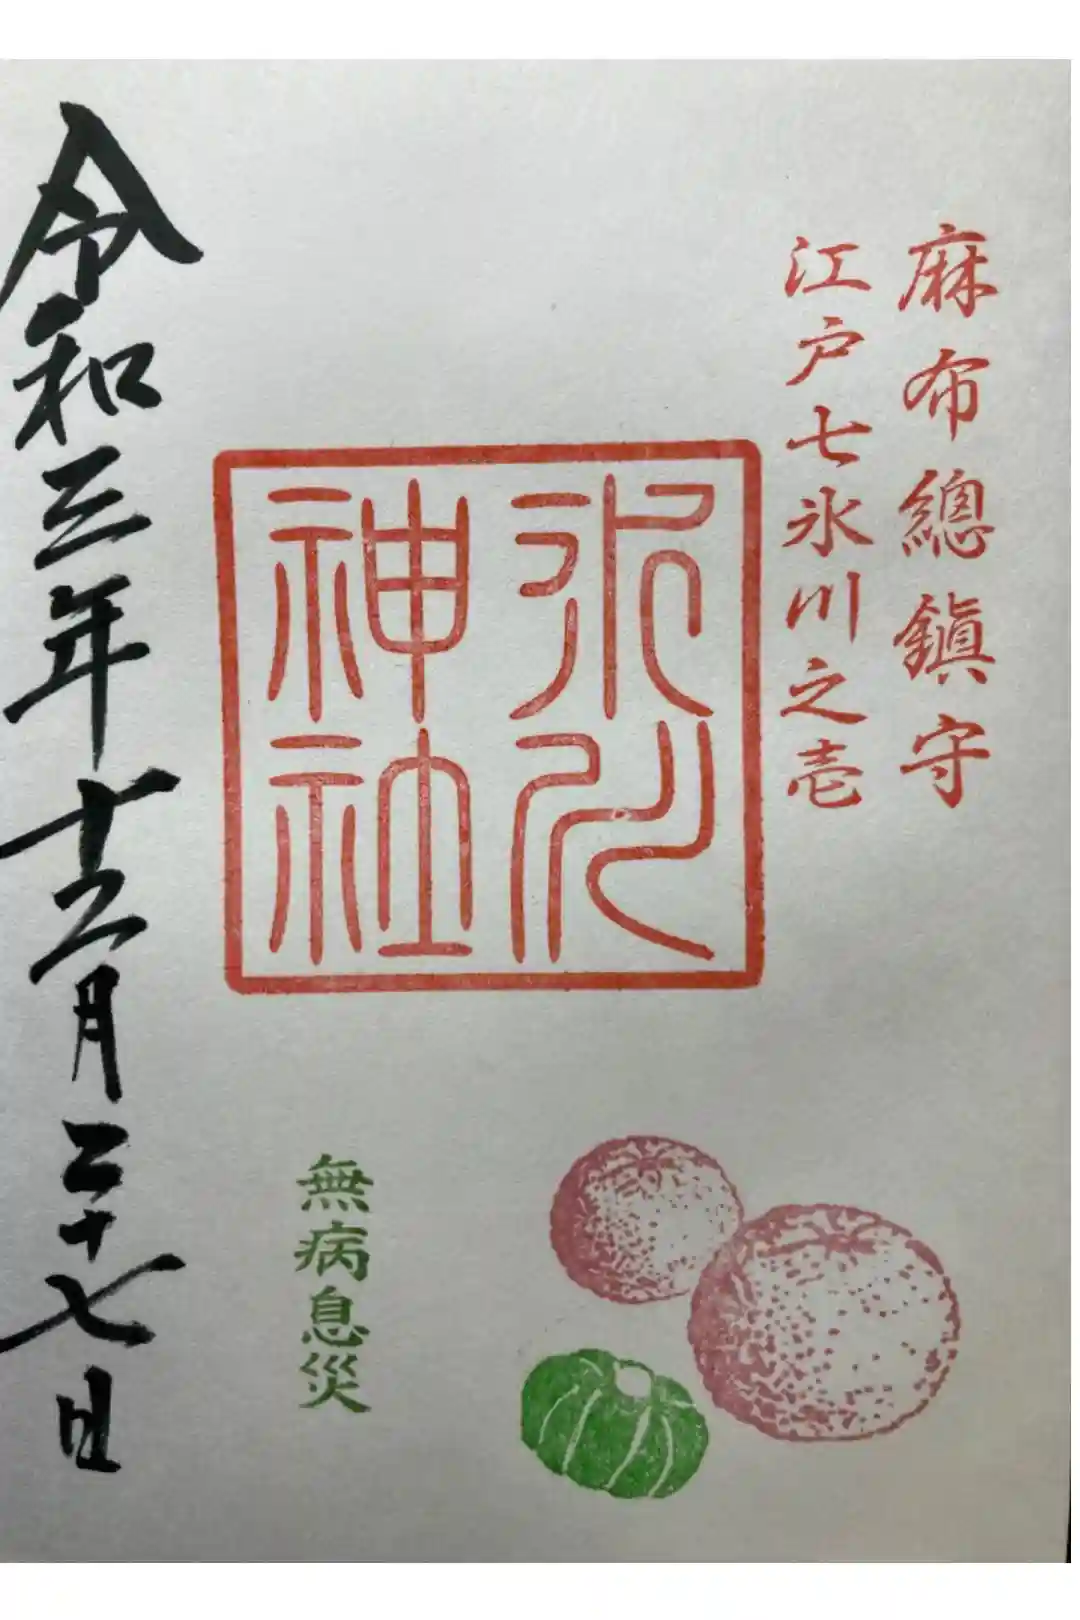 麻布總鎭守
江戸七氷川之壱
氷川
神社
無病息災
令和三年十二月二十七日